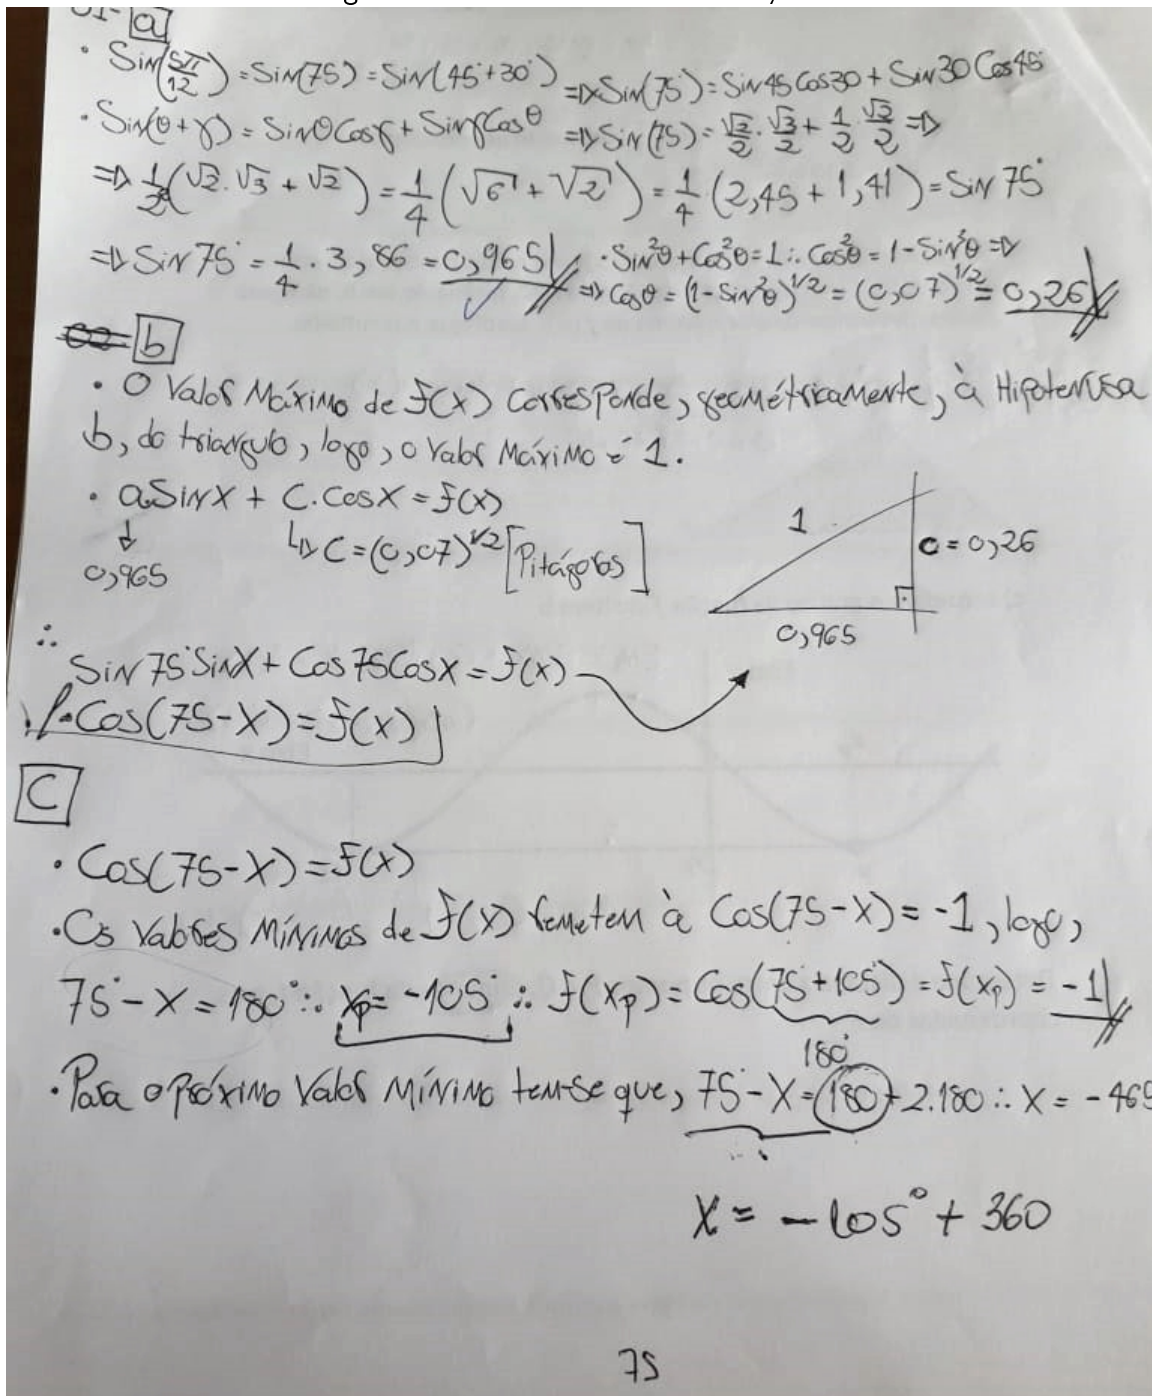 01- a
• Sin(5π/12) = Sin(75) = Sin(45°+30°) => Sin(75°) = Sin45 Cos30 + Sin30 Cos45
• Sin(θ+γ) = SinθCosγ + SinγCosθ => Sin(75) = √2/2 . √3/2 + 1/2 . √2/2 =>
=> 1/4(√2.√3 + √2) = 1/4(√6 + √2) = 1/4(2,45 + 1,41) = Sin 75°
=> Sin 75° = 1/4 . 3,86 = 0,965 • Sin²θ + Cos²θ = 1 ∴ Cos²θ = 1 - Sin²θ =>
=> Cosθ = (1-Sin²θ)^1/2 = (0,07)^1/2 = 0,26
02- b
• O Valor Máximo de f(x) corresponde, geométricamente, à Hipotenusa
b, do triangulo, logo, o Valor Máximo é 1.
• aSinX + C.CosX = f(x)
↓
0,965
↳ C = (0,07)^1/2 [Pitágoras]
1
c = 0,26
0,965
∴
Sin 75°SinX + Cos75CosX = f(x)
∴ Cos(75-X) = f(x)
C
• Cos(75-X) = f(x)
• Os Valores Mínimos de f(x) remetem à Cos(75-X) = -1, logo,
75° - X = 180° ∴ Xp = -105° ∴ f(xp) = Cos(75°+105°) = f(xp) = -1
180°
• Para o Próximo Valor Mínimo tem-se que, 75° - X = 180 + 2.180 ∴ X = -465
X = -105° + 360
75